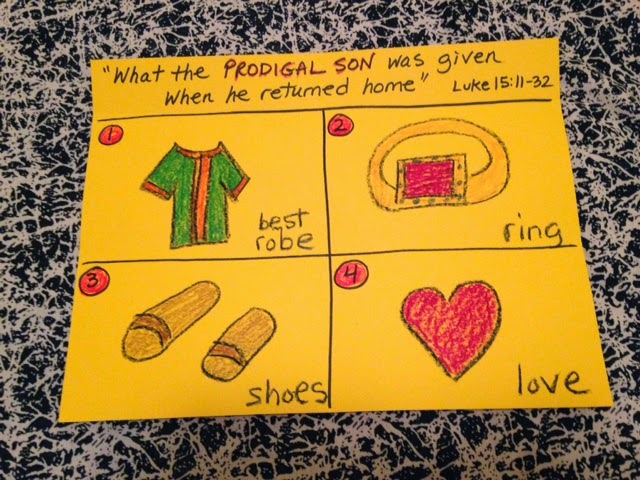 "What the PRODIGAL SON was given
when he returned home" Luke 15:11-32
1
best
robe
2
ring
3
shoes
4
love